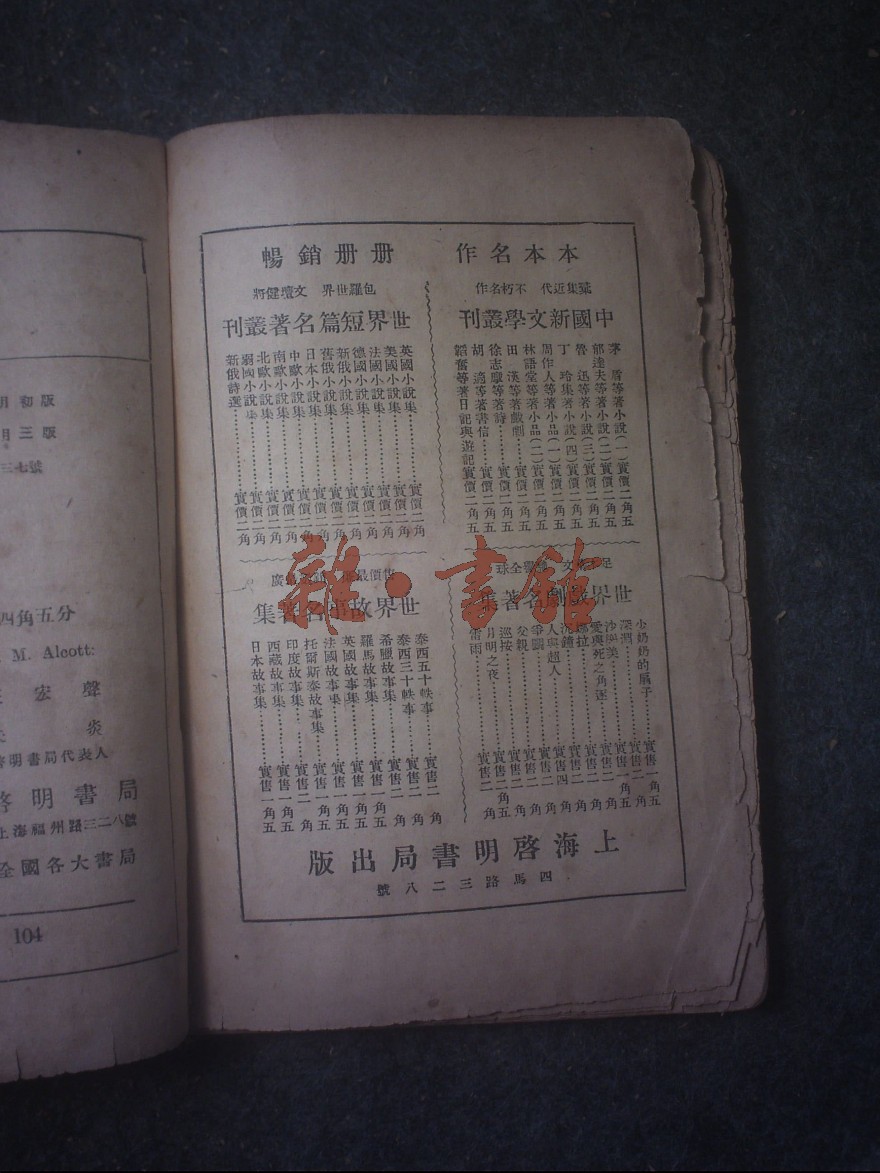 本本名作 册册銷暢
蒐集近代 不朽名作
中國新文學叢刊
茅盾等著小說(一)實價二角五
郁達夫等著小說(二)實價二角五
魯迅等著小說(三)實價二角五
丁玲集著小說(四)實價二角五
周作人等著小品(一)實價二角五
林語堂等著小品(二)實價二角五
田漢等著戲劇……實價二角五
徐志摩等著詩……實價二角五
胡適等著書信……實價二角五
韜奮等著日記與遊記實價二角五
包羅世界 文壇健將
世界短篇名著叢刊
英國小說集……實價二角
美國小說集……實價二角
法國小說集……實價二角
德國小說集……實價二角
新俄小說集……實價二角
舊俄小說集……實價二角
日本小說集……實價二角
中歐小說集……實價二角
南歐小說集……實價二角
北歐小說集……實價二角
弱國小說集……實價二角
新俄詩選……實價二角
全球
世界戲劇名著集
小奶奶的扇子……實售一角五
深淵……實售二角
沙樂美……實售一角五
愛與死之角逐……實售二角
娜拉……實售二角
沉鐘……實售二角
人與超人……實售四角
爭鬪……實售二角
父親……實售二角
巡按……實售二角
月明之夜……實售一角五
雷雨……實售二角
售價最
廣
世界故事名著集
泰西五十軼事……實售二角
泰西三十軼事……實售二角
希臘故事集……實售二角
羅馬故事集……實售一角五
英國故事集……實售一角五
法國故事集……實售一角五
托爾斯泰故事集……實售一角五
印度故事集……實售二角
西藏故事集……實售一角五
日本故事集……實售一角五
上海啓明書局出版
四馬路三二八號
雜·書館
月初版
月三版
三七號
四角五分
M. Alcott:
宏聲
炎
啓明書局代表人
啓明書局
上海福州路三二八號
全國各大書局
104